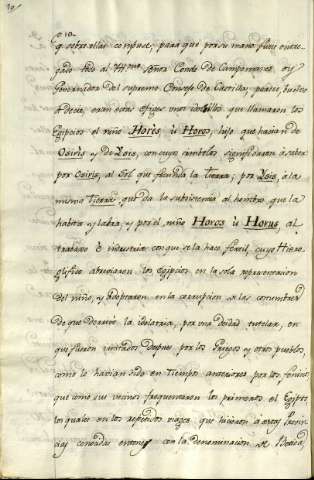 q sobre ellas compuse, para que por su mano fuese entre-
gado todo al Yllmo. Señor Conde de Campomanes oy
Governador del supremo Consejo de Castilla; pareze, buelvo
à decir, eran estas efigies unos idolillos que llamaron los
Egipcios el niño Horès ù Horos; hijo que hacian de
Osiris y de Ysis, con cuyos simbolos significaban à saber
por Osiris, al Sol que fecunda la tierra; por Ysis, à la
misma Tierra que dà la subsistencia al hombre que la
habita y labra; y por el niño Horos ù Horus, al
trabajo è industria con que se la hace fertil, cuyo Hiero-
glifico abreviaron los Egipcios en la sola representacion
del niño, y adoptaron en la corrupcion de las costumbres
de que derivò la idolatria, por una deidad tutelar, en
que fueron imitados despues por los Griegos y otros pueblos,
como lo havian sido en tiempos anteriores por los fenicios,
que como sus vecinos frequentaron los primeros el Egipto
los quales en los repetidos viajes que hicieron à estas Provin-
cias conocidas entonces con la denominacion de Betica